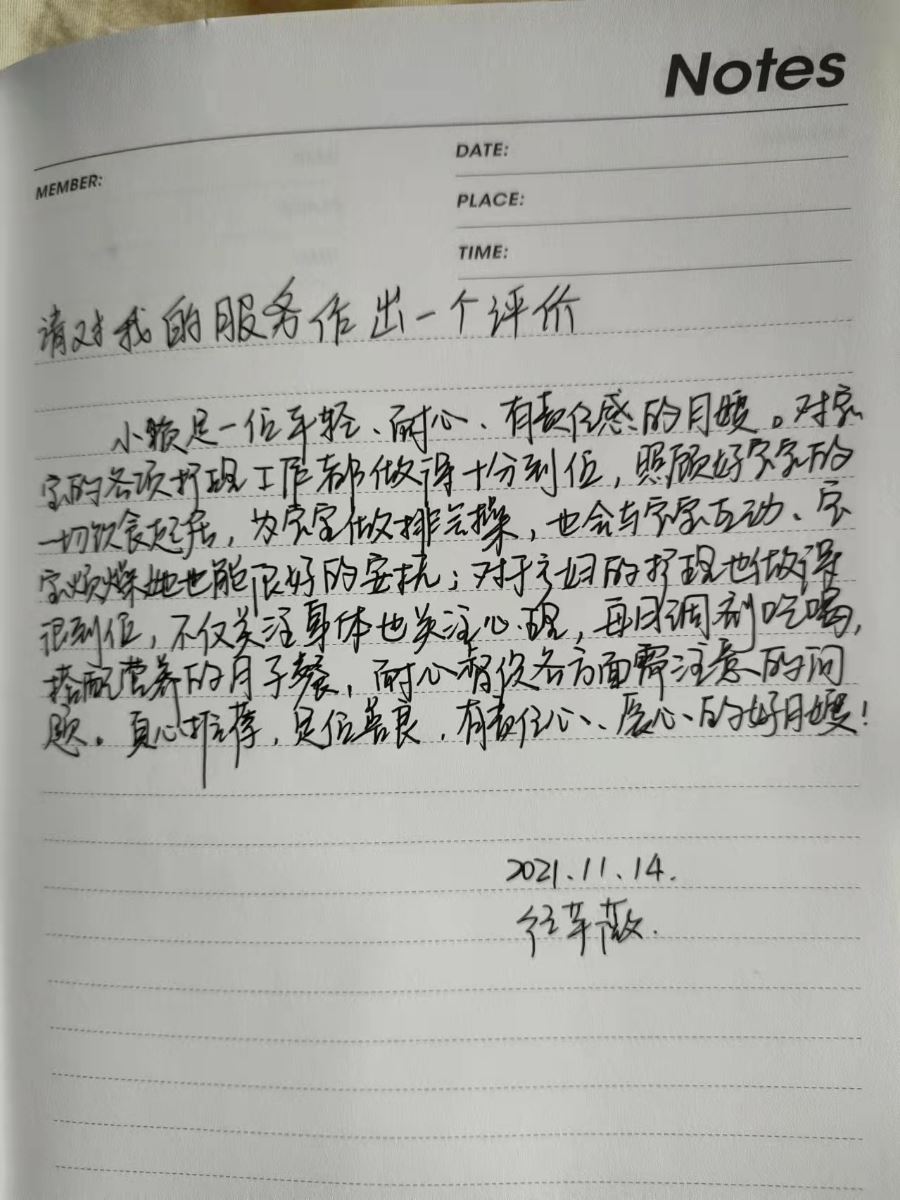 Notes
MEMBER:
DATE:
PLACE:
TIME:
请对我的服务作出一个评价
小赖是一位年轻、耐心、有责任感的月嫂。对宝
宝的各项护理工作都做得十分到位，照顾好宝宝的
一切饮食起居，为宝宝做排气操，也会与宝宝互动、宝
宝烦燥她也能很好的安抚；对于产妇的护理也做得
很到位，不仅关注身体也关注心理，每日调剂吃喝，
搭配营养的月子餐，耐心替你各方面需注意的问
题。真心推荐，是位善良、有责任心、爱心的好月嫂！
2021.11.14.